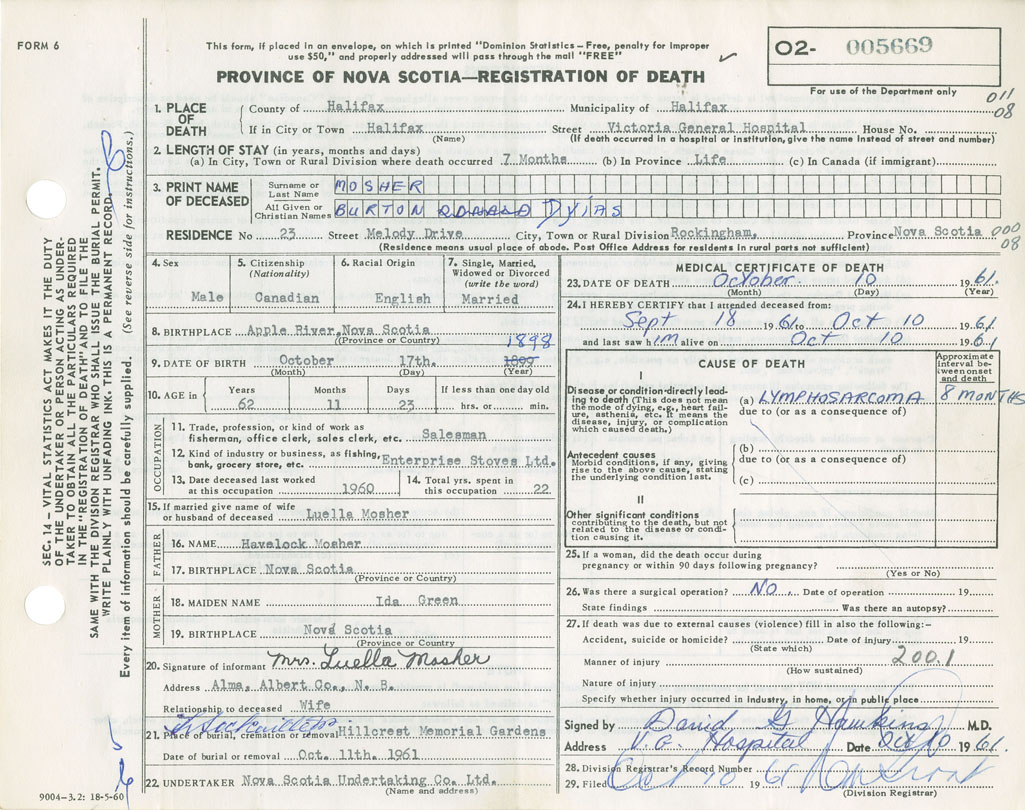 FORM 6
This form, if placed in an envelope, on which is printed "Dominion Statistics – Free, penalty for improper
use $50," and properly addressed will pass through the mail "FREE"
PROVINCE OF NOVA SCOTIA—REGISTRATION OF DEATH
02- 005669
For use of the Department only
011
08
1. PLACE OF DEATH
County of Halifax Municipality of Halifax
If in City or Town Halifax Street Victoria General Hospital House No.
(Name) (If death occurred in a hospital or institution, give the name instead of street and number)
2. LENGTH OF STAY (in years, months and days)
(a) In City, Town or Rural Division where death occurred 7 Months (b) In Province Life (c) In Canada (if immigrant)
3. PRINT NAME OF DECEASED
Surname or Last Name MOSHER
All Given or Christian Names BURTON DONALD DYIAS
RESIDENCE No 23 Street Melody Drive City, Town or Rural Division Rockingham, Province Nova Scotia
000
08
(Residence means usual place of abode. Post Office Address for residents in rural parts not sufficient)
4. Sex
Male
5. Citizenship
(Nationality)
Canadian
6. Racial Origin
English
7. Single, Married,
Widowed or Divorced
(write the word)
Married
8. BIRTHPLACE Apple River, Nova Scotia
(Province or Country)
1898
9. DATE OF BIRTH October 17th. 1899
(Month) (Day) (Year)
10. AGE in
Years Months Days If less than one day old
62 11 23 hrs. or min.
OCCUPATION
11. Trade, profession, or kind of work as
fisherman, office clerk, sales clerk, etc. Salesman
12. Kind of industry or business, as fishing,
bank, grocery store, etc. Enterprise Stoves Ltd.
13. Date deceased last worked
at this occupation 1960
14. Total yrs. spent in
this occupation 22
15. If married give name of wife
or husband of deceased Luella Mosher
FATHER
16. NAME Havelock Mosher
17. BIRTHPLACE Nova Scotia
(Province or Country)
MOTHER
18. MAIDEN NAME Ida Green
19. BIRTHPLACE Nova Scotia
(Province or Country
20. Signature of informant Mrs. Luella Mosher
Address Alma, Albert Co., N. B.
Relationship to deceased Wife
21. Place of burial, cremation or removal Hillcrest Memorial Gardens
Date of burial or removal Oct. 11th. 1961
22. UNDERTAKER Nova Scotia Undertaking Co. Ltd.
(Name and address)
MEDICAL CERTIFICATE OF DEATH
23. DATE OF DEATH October 10 1961.
(Month) (Day) (Year)
24. I HEREBY CERTIFY that I attended deceased from:
Sept 18 1961 to Oct 10 1961
and last saw him alive on Oct 10 1961
CAUSE OF DEATH
Approximate
interval be-
tween onset
and death
I
Disease or condition-directly lead-
ing to death (This does not mean
the mode of dying, e.g., heart fail-
ure, asthenia, etc. It means the
disease, injury, or complication
which caused death.)
(a) LYMPHOSARCOMA 8 MONTHS
due to (or as a consequence of)
Antecedent causes
Morbid conditions, if any, giving
rise to the above cause, stating
the underlying condition last.
(b)
due to (or as a consequence of)
(c)
II
Other significant conditions
contributing to the death, but not
related to the disease or condi-
tion causing it.
25. If a woman, did the death occur during
pregnancy or within 90 days following pregnancy?
(Yes or No)
26. Was there a surgical operation? NO Date of operation 19
State findings Was there an autopsy?
27. If death was due to external causes (violence) fill in also the following:–
Accident, suicide or homicide? Date of injury 19
(State which)
Manner of injury 200.1
(How sustained)
Nature of injury
Specify whether injury occurred in industry, in home, or in public place
Signed by David G Hawkins M.D.
Address V.G. Hospital Date Oct 10 1961.
28. Division Registrar's Record Number
29. Filed Oct 10 1961
(Division Registrar)
SEC. 14 – VITAL STATISTICS ACT MAKES IT THE DUTY
OF THE UNDERTAKER OR PERSON ACTING AS UNDER-
TAKER TO OBTAIN ALL THE PARTICULARS REQUIRED
IN THE "REGISTRATION OF DEATH" AND TO FILE THE
SAME WITH THE DIVISION REGISTRAR WHO SHALL ISSUE THE BURIAL PERMIT.
WRITE PLAINLY WITH UNFADING INK. THIS IS A PERMANENT RECORD.
Every item of information should be carefully supplied. (See reverse side for instructions.)
9004–3.2: 18-5-60